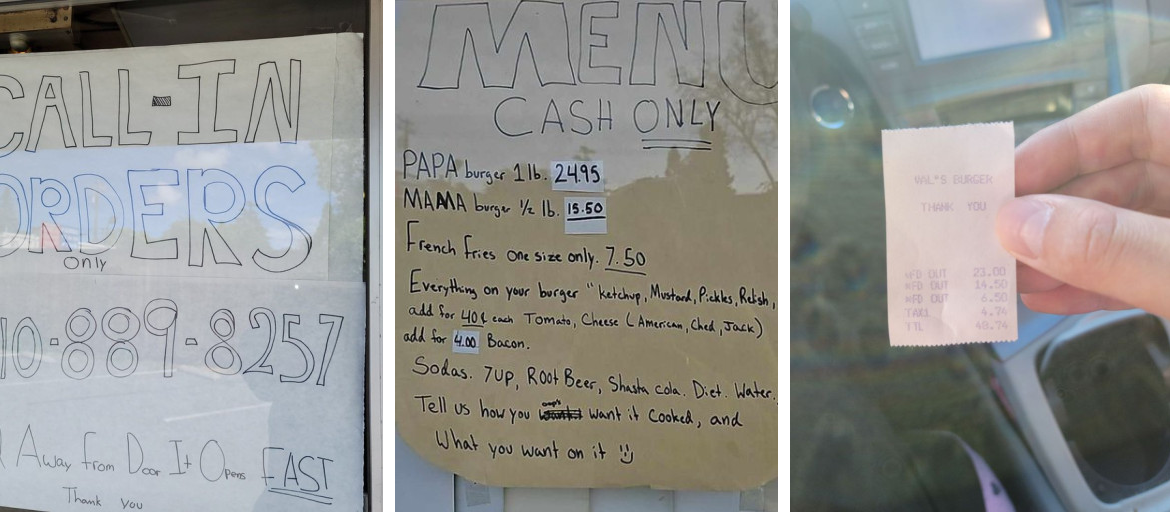 CALL-IN
ORDERS
only
10-889-8257
Away from Door It Opens FAST
Thank you
MENU
CASH ONLY
PAPA burger 1 lb. 24.95
MAMA burger 1/2 lb. 15.50
French fries one size only. 7.50
Everything on your burger " ketchup, Mustard, Pickles, Relish,
add for 40¢ each Tomato, Cheese (American, Ched, Jack)
add for 4.00 Bacon.
Sodas. 7up, Root Beer, Shasta cola. Diet. Water.
Tell us how you want it Cooked, and
What you want on it
WAL'S BURGER
THANK YOU
MFD OUT 23.00
MFD OUT 14.50
MFD OUT 6.50
TAX1 4.74
TTL 48.74